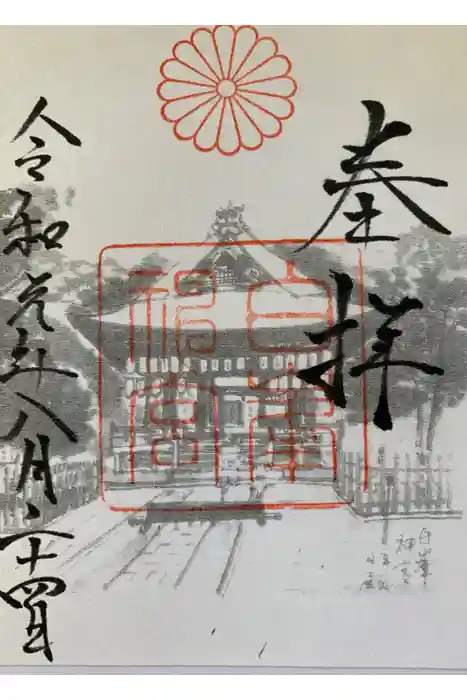 奉拝
白峯神宮
令和元年八月二十四日
白峯
神宮